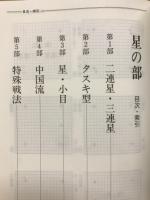 星の部
目次・索引
第1部 二連星・三連星
第2部 タスキ型
第3部 星・小目
第4部 中国流
第5部 特殊戦法